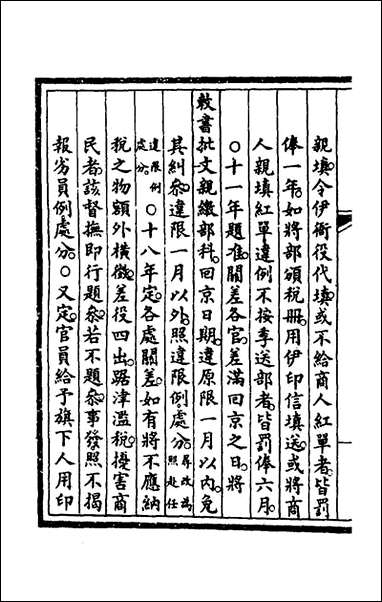 親填令伊衙役代填或不給商人紅單者皆罰
俸一年如將部頒稅冊用伊印信填送或將商
人親填紅單違例不按季送部者皆罰俸六月
○十一年題准關差各官差滿回京之日將
敕書批文親繳部科回京日期違原限一月以内免
其糾參違限一月以外照違限例處分尋改爲照赴任
違限例處分○十八年定各處關差如有將不應納
稅之物額外橫徵差役四出踞津濫稅擾害商
民者該督撫即行題參若不題參事發照不揭
報劣員例處分○又定官員給予旗下人用印